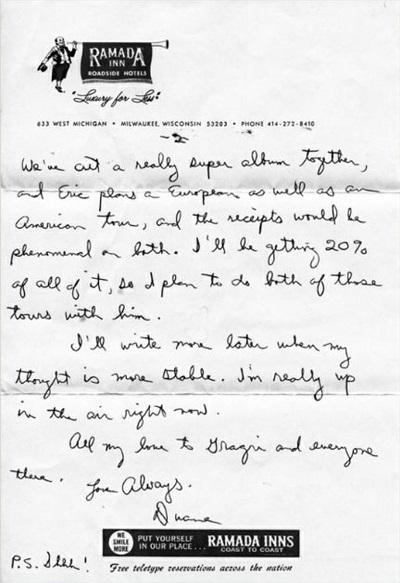 RAMADA
INN
ROADSIDE HOTELS
"Luxury for Less"
633 WEST MICHIGAN • MILWAUKEE, WISCONSIN 53203 • PHONE 414-272-8410
-2-
We've cut a really super album together,
and Eric plans a European as well as an
American tour, and the receipts would be
phenomenal on both. I'll be getting 20%
of all of it, so I plan to do both of those
tours with him.
I'll write more later when my
thought is more stable. I'm really up
in the air right now.
All my love to and everyone
there. Love Always.
Duane
WE
SMILE
MORE
PUT YOURSELF
IN OUR PLACE...
RAMADA INNS
COAST TO COAST
P.S. Shhh!
Free teletype reservations across the nation